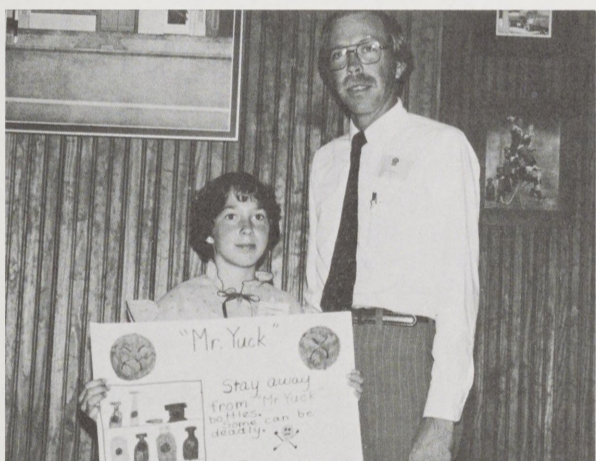 "Mr. Yuck"
Stay away
from "Mr Yuck"
bottles.
Some can be
deadly.